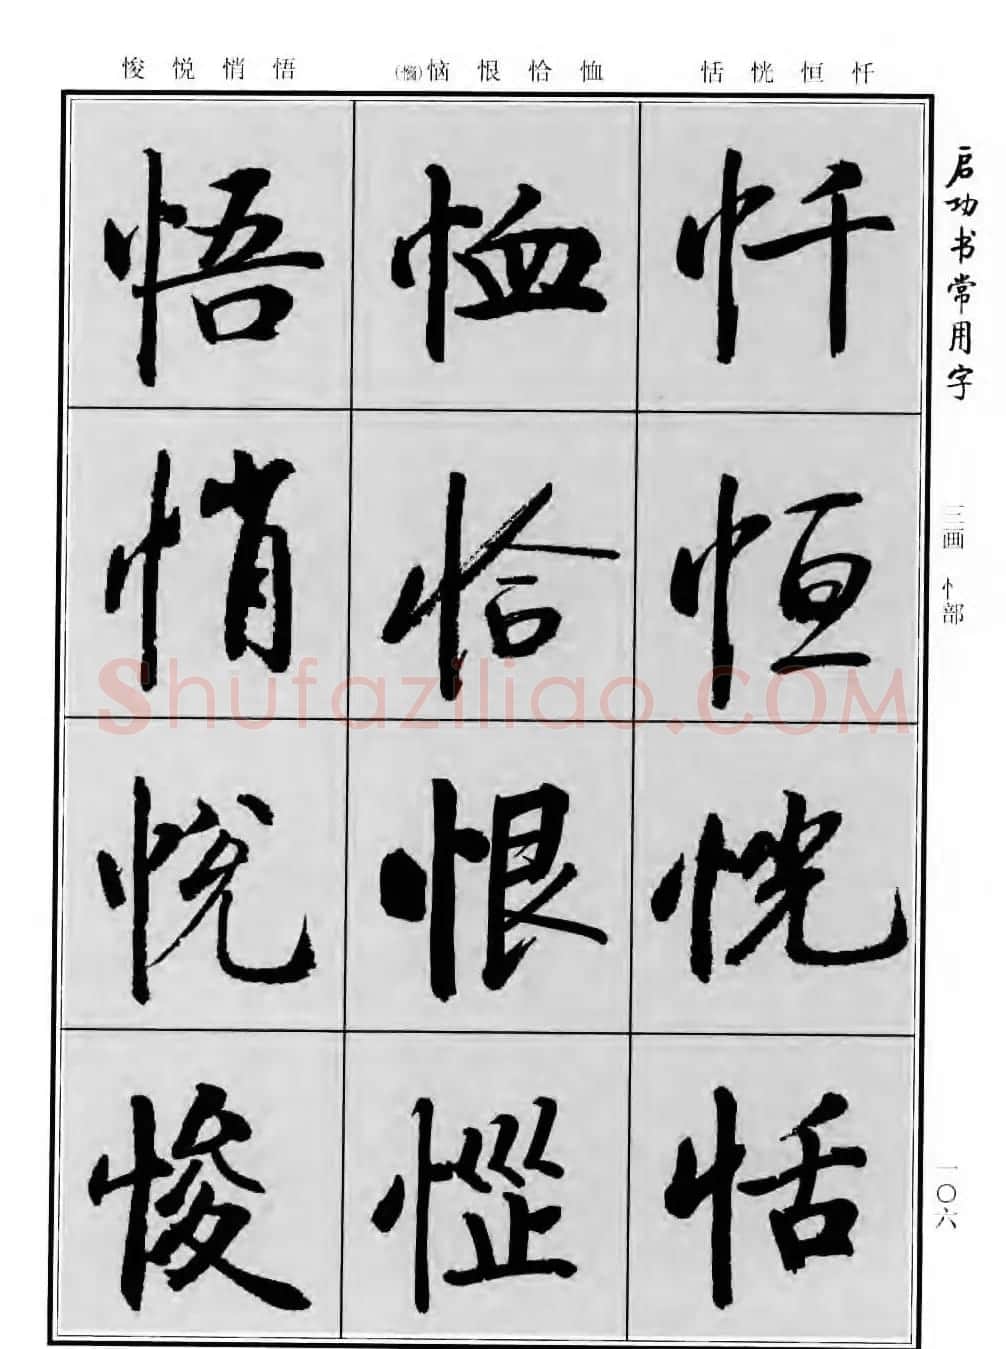 忏恒恍恬 恤恰恨恼(惱) 悟悄悦悛
启功书常用字
三画 忄部
一〇六
忏恒恍恬
恤恰恨
悟悄悦悛
Shufaziliao.COM